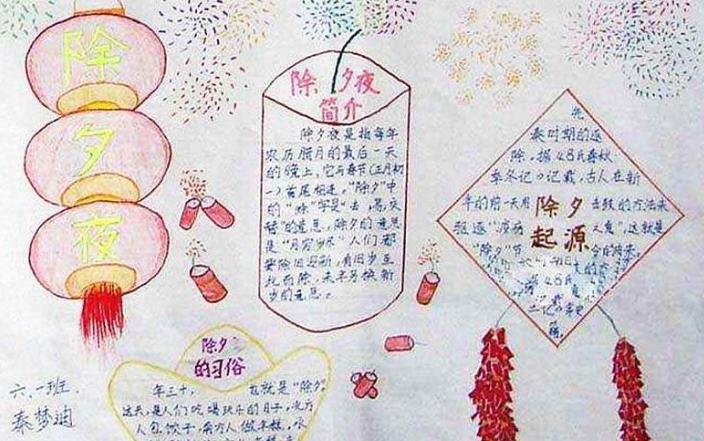 除夕夜
除夕夜
简介
除夕夜是指每年
农历腊月的最后一天
的晚上,它与春节(正月初
一)首尾相连。“除夕”中
的“除”字是“去,易,交
替”的意思,除夕的意思
是“月穷岁尽”人们都
要除旧迎新,有旧岁至
此而除,来年另换新
岁的意思。
先
秦时期的逐
除,据《吕氏春秋·
季冬记》记载,古人在新
年的前一天用 击鼓的方法来
驱逐“疫疠 之鬼”,这就是
“除夕”节
除夕
起源
除夕
的习俗
年三十, 也就是“除夕”
这天,是人们吃喝玩乐的日子,北方
人包饺子,南方人做年糕。水
六、一班
秦梦迪